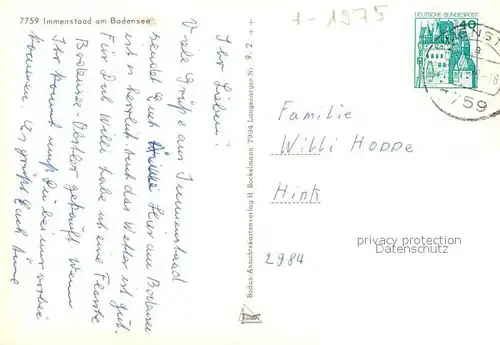 7759 Immenstaad am Bodensee
Ihr Lieben!
Viele Grüße aus Immenstaad
sendet Euch Hier am Bodensee
ist es herrlich und das Wetter ist gut.
Für Dich Willi habe ich eine Flasche
Bodensee-Obstler gekauft. Wenn
Ihr kommt mußt Du bei mir vorbei
kommen. Es grüßt Euch
Bodan-Ansichtskartenverlag H. Bockelmann, 7994 Langenargen Nr. 9 2 + +
+-1975
DEUTSCHE BUNDESPOST
40
7759
Familie
Willi HODDE
Hink
2984
privacy protection
Copyright